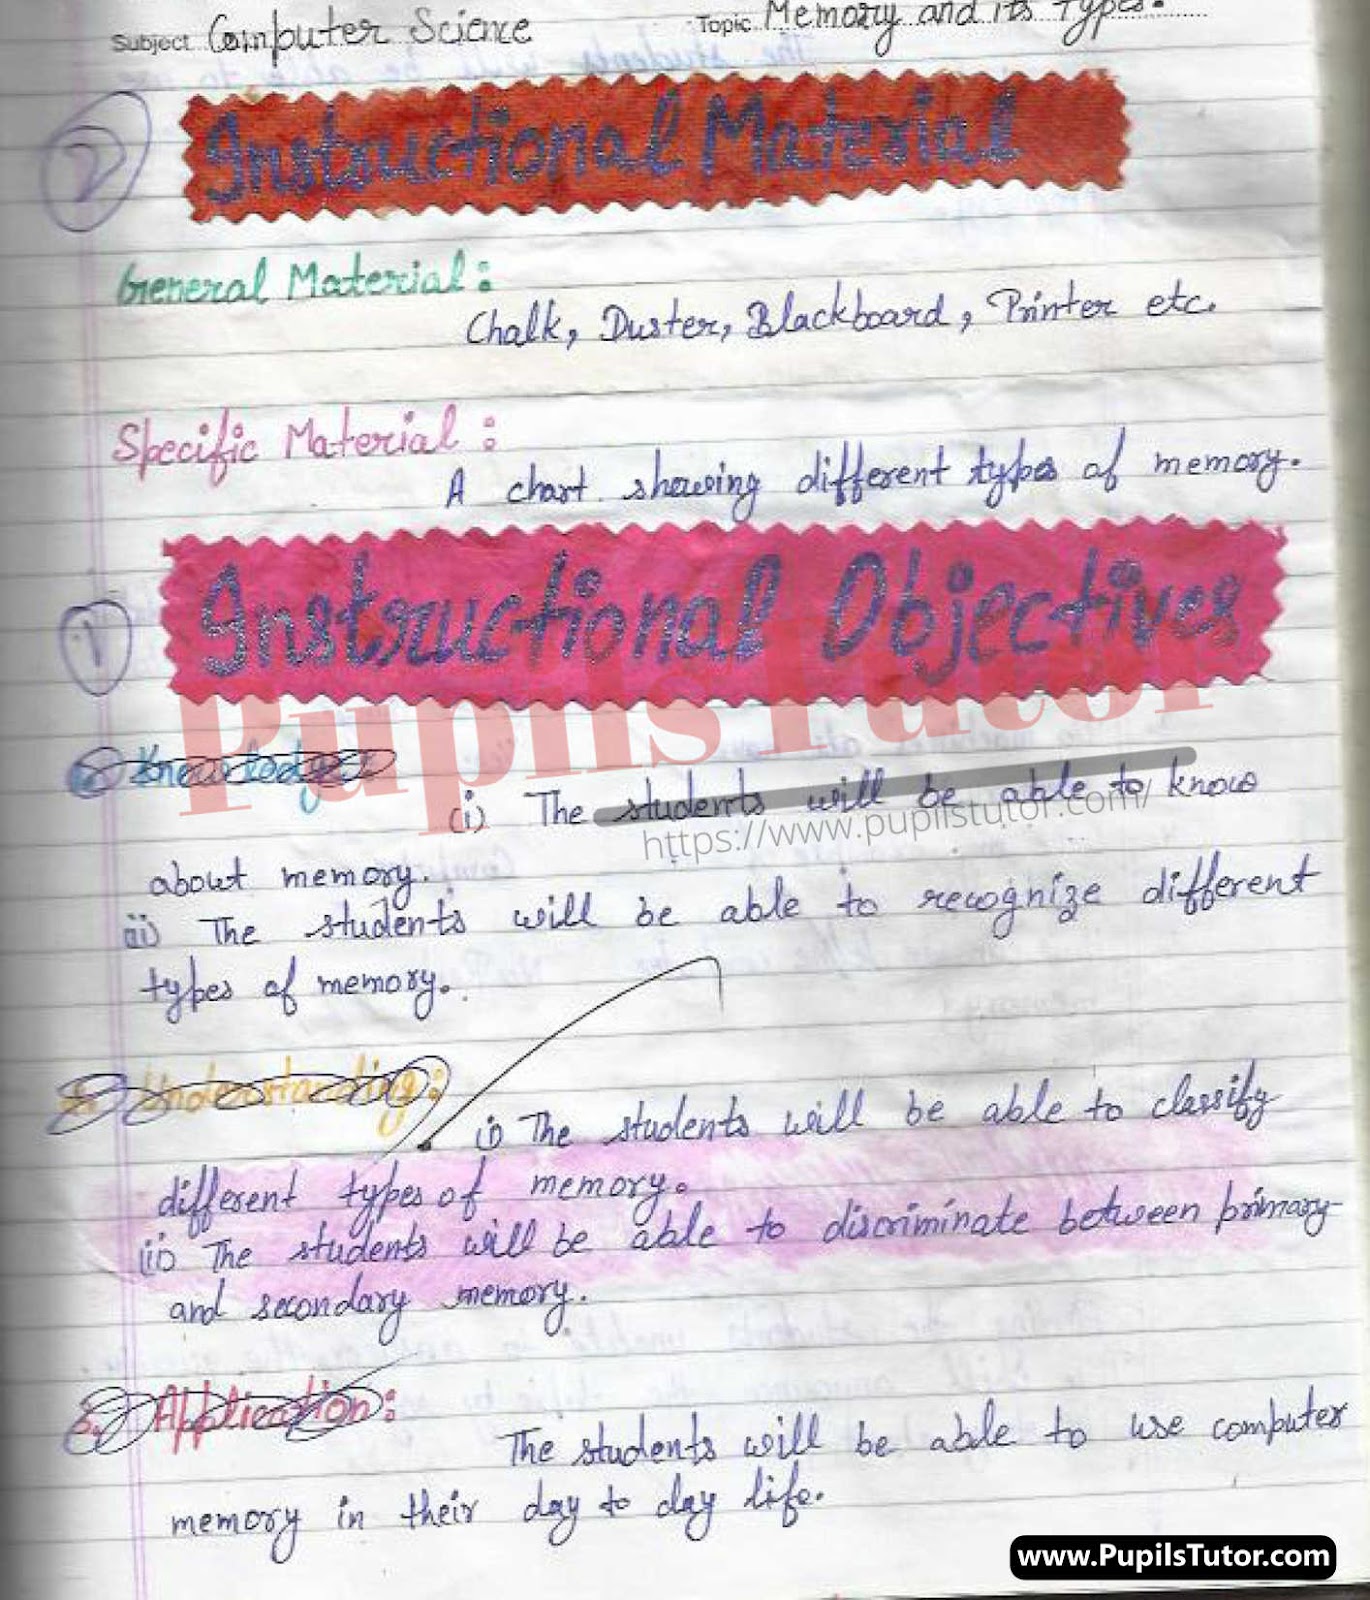 Subject Computer Science Topic Memory and its Types.
2
Instructional Material
General Material:
Chalk, Duster, Blackboard, Printer etc.
Specific Material:
A chart showing different types of memory.
1
Instructional Objectives
PupilsTutor
1. Knowledge
(i) The students will be able to know
https://www.pupilstutor.com/
about memory.
ii) The students will be able to recognize different
types of memory.
2. Understanding:
i) The students will be able to classify
different types of memory.
ii) The students will be able to discriminate between primary
and secondary memory.
3. Application:
The students will be able to use computer
memory in their day to day life.
www.PupilsTutor.com